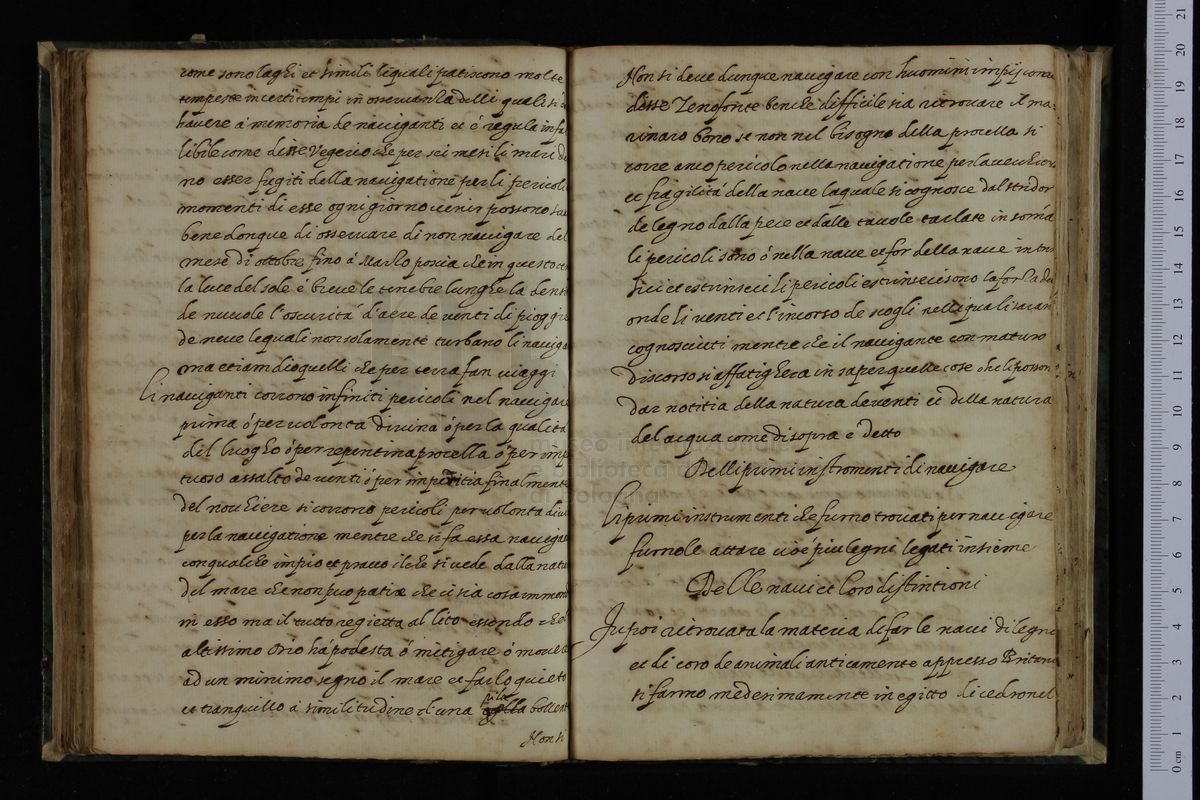 come sono laghi et simili lequali patiscono molte
tempeste in certi tempi in osservanza delli quali si d
havere à memoria de naviganti et è regula infa
libile come disse Vegetio che per sei mesi li mari di
no esser fugiti della navigatione per li pericoli
momenti di esse ogni giorno venir possono sia
bene donque di osservare di non navigare del
mese di ottobre fino à Marzo poscia che in questo
la luce del sole è breve le tenebre lunghe la dens
de nuvole l'oscurità d'aere de venti di pioggie
de neve lequali non solamente turbano li naviga
ma etiam dio quelli che per terra fan viaggi
li naviganti corrono infiniti pericoli nel navigare
prima ò per volonta divina ò per la qualità
dil luogho ò per repentina procella ò per imp
tuoso assalto de venti ò per imperitia finalmente
del nochiere si corrono pericoli per volonta divi
per la navigatione mentre che si fa essa naviga
con qualche impio et pravo il che si vede dalla natu
dil mare che non puo patire che ci sia cosa immon
in esso ma il tutto regietta al lito essendo che
altissimo Dio hà podesta ò mitigare ò movere
ad un minimo segno il mare et farlo quieto
et tranquillo à similitudine d'una pila bollent
Non si
Non si deve dunque navigare con huomini impij come
disse Zenofonte benche difficile sia ritrovare il ma:
rinaro bono se non nel bisogno della procella si
corre anco pericolo nella navigatione per la vechiez
et fragilità della nave laquale si cognosce dal stridor
de legno dalla pece et dalle tavole tarlate in somà
li pericoli sono ò nella nave et for della nave intri
sici et estrinseci li pericoli estrinseci sono la forza de
onde li venti et l'incorso de scogli nelli quali saran
cognosciuti mentre che il navigante con maturo
discorso si affatighera in saper quelle cose che li posson
dar notitia della natura de venti et della natura
del acqua come di sopra e detto
Delli primi instromenti di navigare
li primi instrumenti che furno trovati per navigare
furno le attare cioè piu legni legati insieme
Delle navi et loro distintioni
Fu poi ritrovata la materia di far le navi di legni
et di coro de animali anticamente appresso Britani
si farmo medesimamente in egitto di cedro nel
museo in
e biblioteca
di bologna